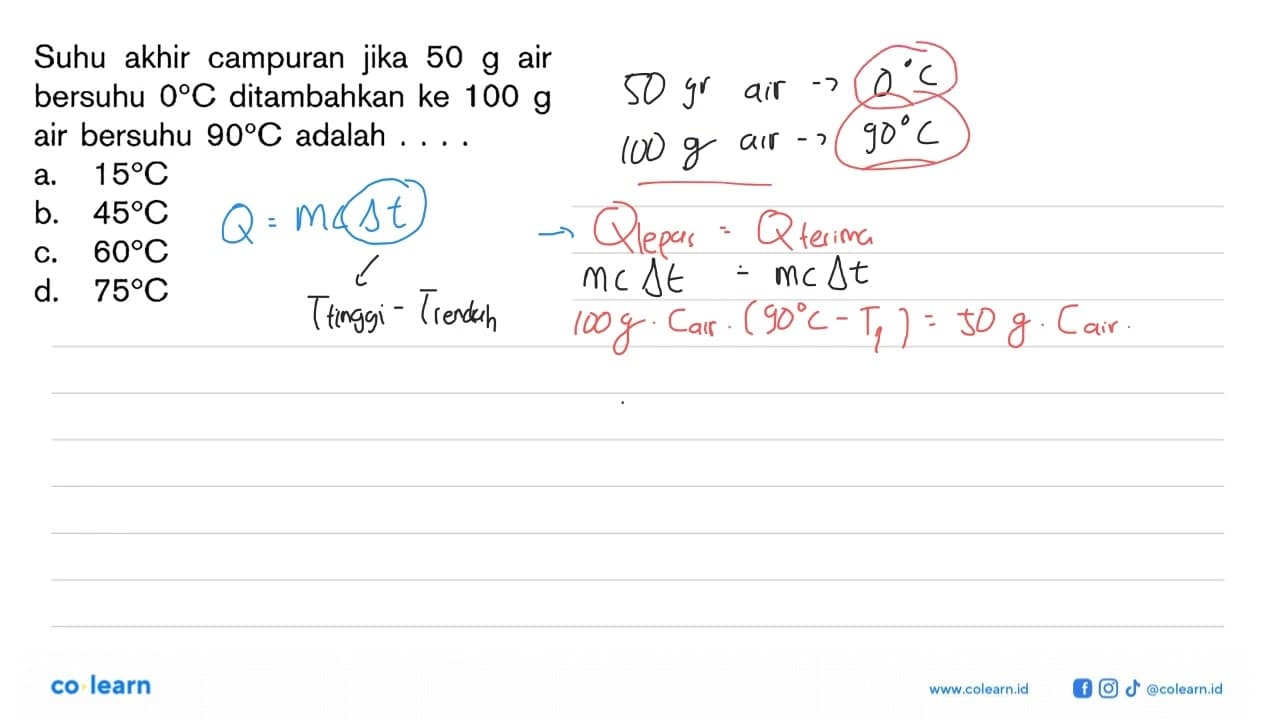 Suhu akhir campuran jika 50 g air
bersuhu 0°C ditambahkan ke 100 g
air bersuhu 90°C adalah . . . .
a. 15°C
b. 45°C
c. 60°C
d. 75°C
50 gr air -> 0°C
100 g air -> 90°C
Q = mcΔt
Ttinggi - Trendah
→ Qlepas = Qterima
mcΔt = mcΔt
100 g . Cair . (90°C - T1) = 50 g . Cair .
co learn
www.colearn.id
@colearn.id